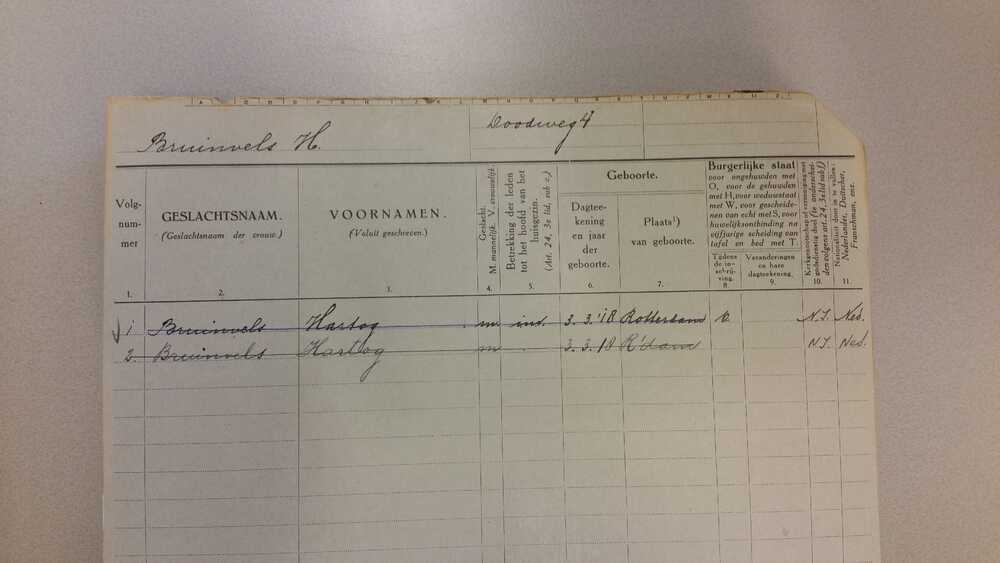 Bruinvels H.
Doodweg 4
Volg-
nummer
1.
GESLACHTSNAAM.
(Geslachtsnaam der vrouw.)
2.
VOORNAMEN.
(Voluit geschreven.)
3.
Geslacht.
M. mannelijk. V. vrouwelijk.
4.
Betrekking der leden
tot het hoofd van het
huisgezin.
(Art. 24, 3e lid, sub c.)
5.
Geboorte.
Dagtee-
kening
en jaar
der
geboorte.
6.
Plaats¹)
van geboorte.
7.
Burgerlijke staat
voor ongehuwden met
O, voor de gehuwden
met H, voor weduwestaat
met W, voor gescheide-
nen van echt met S, voor
huwelijksontbinding na
vijfjarige scheiding van
tafel en bed met T.
Tijdens
de in-
schrij-
ving.
8.
Veranderingen
en hare
dagteekening.
9.
Kerkgenootschap of vereeniging met
godsdienstig doel (te onderschei-
den volgens art. 24, 3e lid sub f.)
10.
Nationaliteit door in te vullen:
Nederlander, Duitscher,
Franschman, enz.
11.
1 Bruinvels Hartog m ind. 3.3.'18 Rotterdam O. N.I. Ned.
2. Bruinvels Hartog m . 3.3.18 R'dam N.I. Ned.